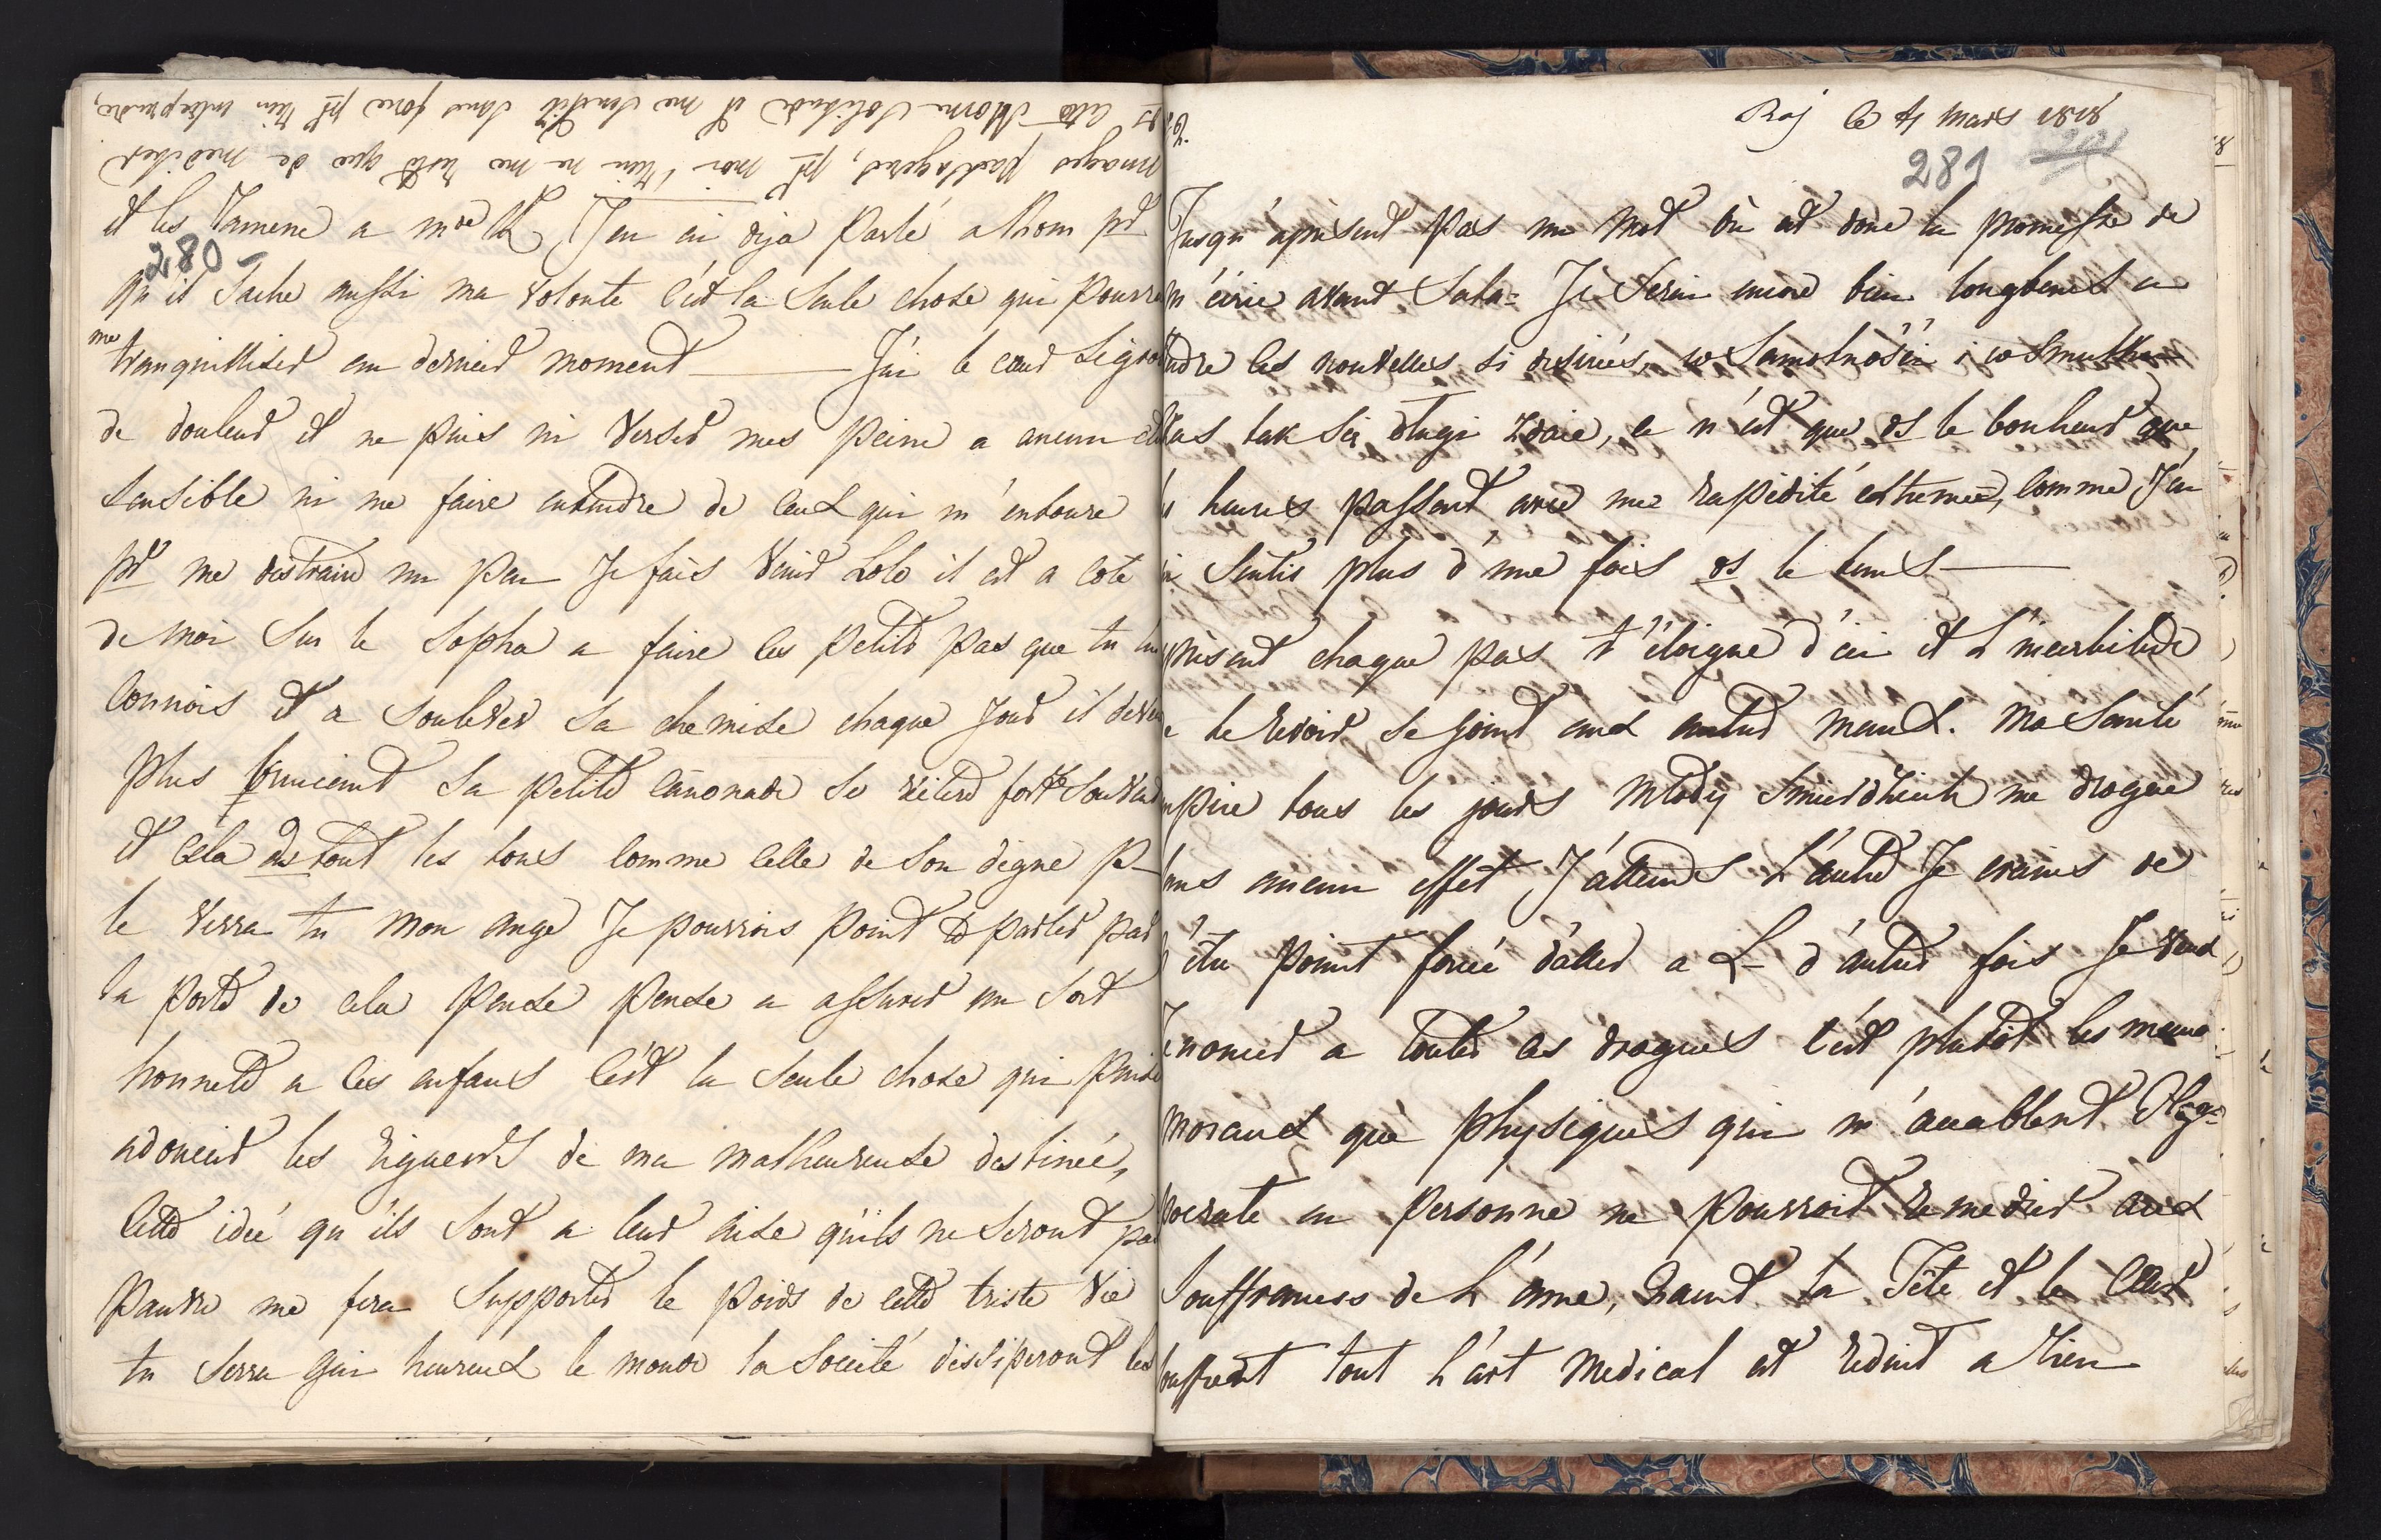 et les Ramene a mde R J'en ai deja Parlé a thom pr
280
qu'il Sache aussi ma Volonte C'est la Seule chose qui pourra
me
tranquilliser au dernier moment — J'ai le cœur
de douleur et ne puis ni Verser mes Peine a aucun
Sensible ni me faire entendre de Ceux qui m'entoure
pr me distraire un peu Je fais Venir Lolo il est a Coté
de moi Sur le Sopha a faire les petits pas que tu lui
Connois et a Soulever Sa chemise chaque Jour il devien
plus Sa petite Canonade Se reitere forte Souvent
et Cela ds tout les tons Comme Celle de Son digne pe-
le Verra tu Mon ange Je pourrois point parler par
la porte de Cela Pense Pense a assurer un Sort
honnete a Ces enfans C'est la Seule chose qui puisse
adoucir les Rigueurs de ma malheureuse destinée,
Cette idée qu'ils Sont a leur aise qu'ils ne Seront pas
Pauvre me fera Supporter le poids de Cette triste Vie
tu Serra Gai heureux le monde la Société dissiperont les
nuages passagers, pr moi rien ne me reste que de mediter
ds Cette Morne Solitude et me Sentir Sans force pr rien entreprendre,
Raj le 4 mars 1818
281
Jusqu'apresent pas un Mot ou est donc la promesse de
m'écrire avant Sala= Je Serai encore bien longtems a
ndre les nouvelles Si desirées, w Samotności i w Smutku
Czas tak Się długi zdaie, ce n'est que ds le bonheur que
les heures passent avec une Rapidité extremée, Comme J'en
ai Sentis plus d'une fois ds le tems —
apresent chaque pas t'éloigne d'ici et L'incertitude
de te Revoir Se joint aux autres maux. Ma Santé
empire tous les jours Mlody me drogue
Sans aucun effet J'attends L'autre Je crains de
n'étre point forcée d'aller a L- d'autres fois Je Veux
Renoncer a toutes Ces drogues C'est plutot les maux
moraux que physiques qui m'accablent Hyp=
pocrate en Personne ne Pourroit Remedier aux
Souffrances de L'ame, quand la Tête et le Cœur
Souffrent tout L'art Medical est Reduit a Rien